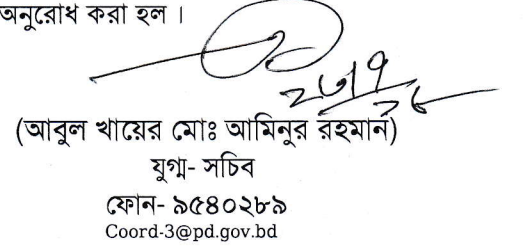 অনুরোধ করা হল ।
(আবুল খায়ের মোঃ আমিনুর রহমান)
যুগ্ম- সচিব
ফোন- ৯৫৪০২৮৯
Coord-3@pd.gov.bd